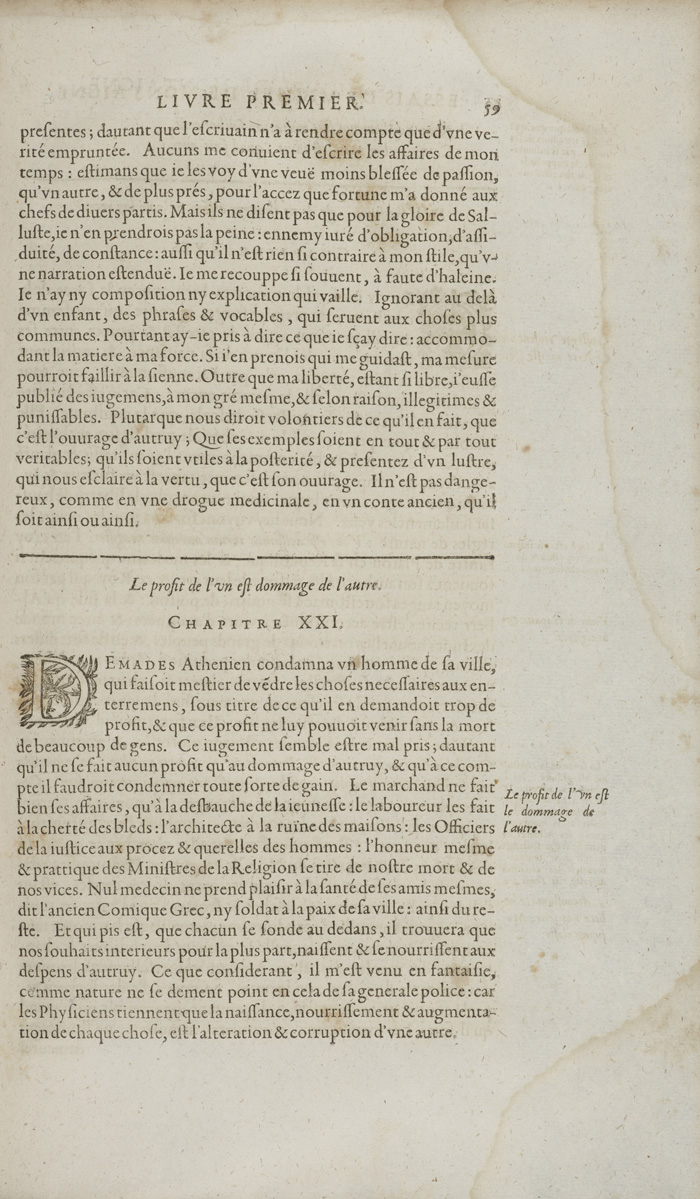 LIVRE PREMIER. 59
preſentes; dautant que l'eſcriuain n'a à rendre compte que d'vne ve-
rité empruntée. Aucuns me conuient d'eſcrire les affaires de mon
temps : eſtimans que ie les voy d'vne veuë moins bleſſée de paſſion,
qu'vn autre, & de plus prés, pour l'accez que fortune m'a donné aux
chefs de diuers partis. Mais ils ne diſent pas que pour la gloire de Sal-
luſte, ie n'en prendrois pas la peine : ennemy iuré d'obligation, d'aſſi-
duité, de conſtance : auſſi qu'il n'eſt rien ſi contraire à mon ſtile, qu'v-
ne narration eſtenduë. Ie me recouppe ſi ſouuent, à faute d'haleine.
Ie n'ay ny compoſition ny explication qui vaille. Ignorant au delà
d'vn enfant, des phraſes & vocables, qui ſeruent aux choſes plus
communes. Pourtant ay-ie pris à dire ce que ie ſçay dire : accommo-
dant la matiere à ma force. Si i'en prenois qui me guidaſt, ma meſure
pourroit faillir à la ſienne. Outre que ma liberté, eſtant ſi libre, i'euſſe
publié des iugemens, à mon gré meſme, & ſelon raiſon, illegitimes &
puniſſables. Plutarque nous diroit volontiers de ce qu'il en fait, que
c'eſt l'ouurage d'autruy ; Que ſes exemples ſoient en tout & par tout
veritables; qu'ils ſoient vtiles à la poſterité, & preſentez d'vn luſtre,
qui nous eſclaire à la vertu, que c'eſt ſon ouurage. Il n'eſt pas dange-
reux, comme en vne drogue medicinale, en vn conte ancien, qu'il
ſoit ainſi ou ainſi.
Le profit de l'vn eſt dommage de l'autre.
CHAPITRE XXI.
DEMADES Athenien condamna vn homme de ſa ville,
qui faiſoit meſtier de vēdre les choſes neceſſaires aux en-
terremens, ſous titre de ce qu'il en demandoit trop de
profit, & que ce profit ne luy pouuoit venir ſans la mort
de beaucoup de gens. Ce iugement ſemble eſtre mal pris; dautant
qu'il ne ſe fait aucun profit qu'au dommage d'autruy, & qu'à ce com-
pte il faudroit condemner toute ſorte de gain. Le marchand ne fait
bien ſes affaires, qu'à la deſbauche de la ieuneſſe : le laboureur les fait
à la cherté des bleds : l'architecte à la ruïne des maiſons : les Officiers
de la iuſtice aux procez & querelles des hommes : l'honneur meſme
& prattique des Miniſtres de la Religion ſe tire de noſtre mort & de
nos vices. Nul medecin ne prend plaiſir à la ſanté de ſes amis meſmes,
dit l'ancien Comique Grec, ny ſoldat à la paix de ſa ville : ainſi du re-
ſte. Et qui pis eſt, que chacun ſe ſonde au dedans, il trouuera que
nos ſouhaits interieurs pour la plus part, naiſſent & ſe nourriſſent aux
deſpens d'autruy. Ce que conſiderant, il m'eſt venu en fantaiſie,
comme nature ne ſe dement point en cela de ſa generale police : car
les Phyſiciens tiennent que la naiſſance, nourriſſement & augmenta-
tion de chaque choſe, eſt l'alteration & corruption d'vne autre.
Le profit de l'vn eſt
le dommage de
l'autre.